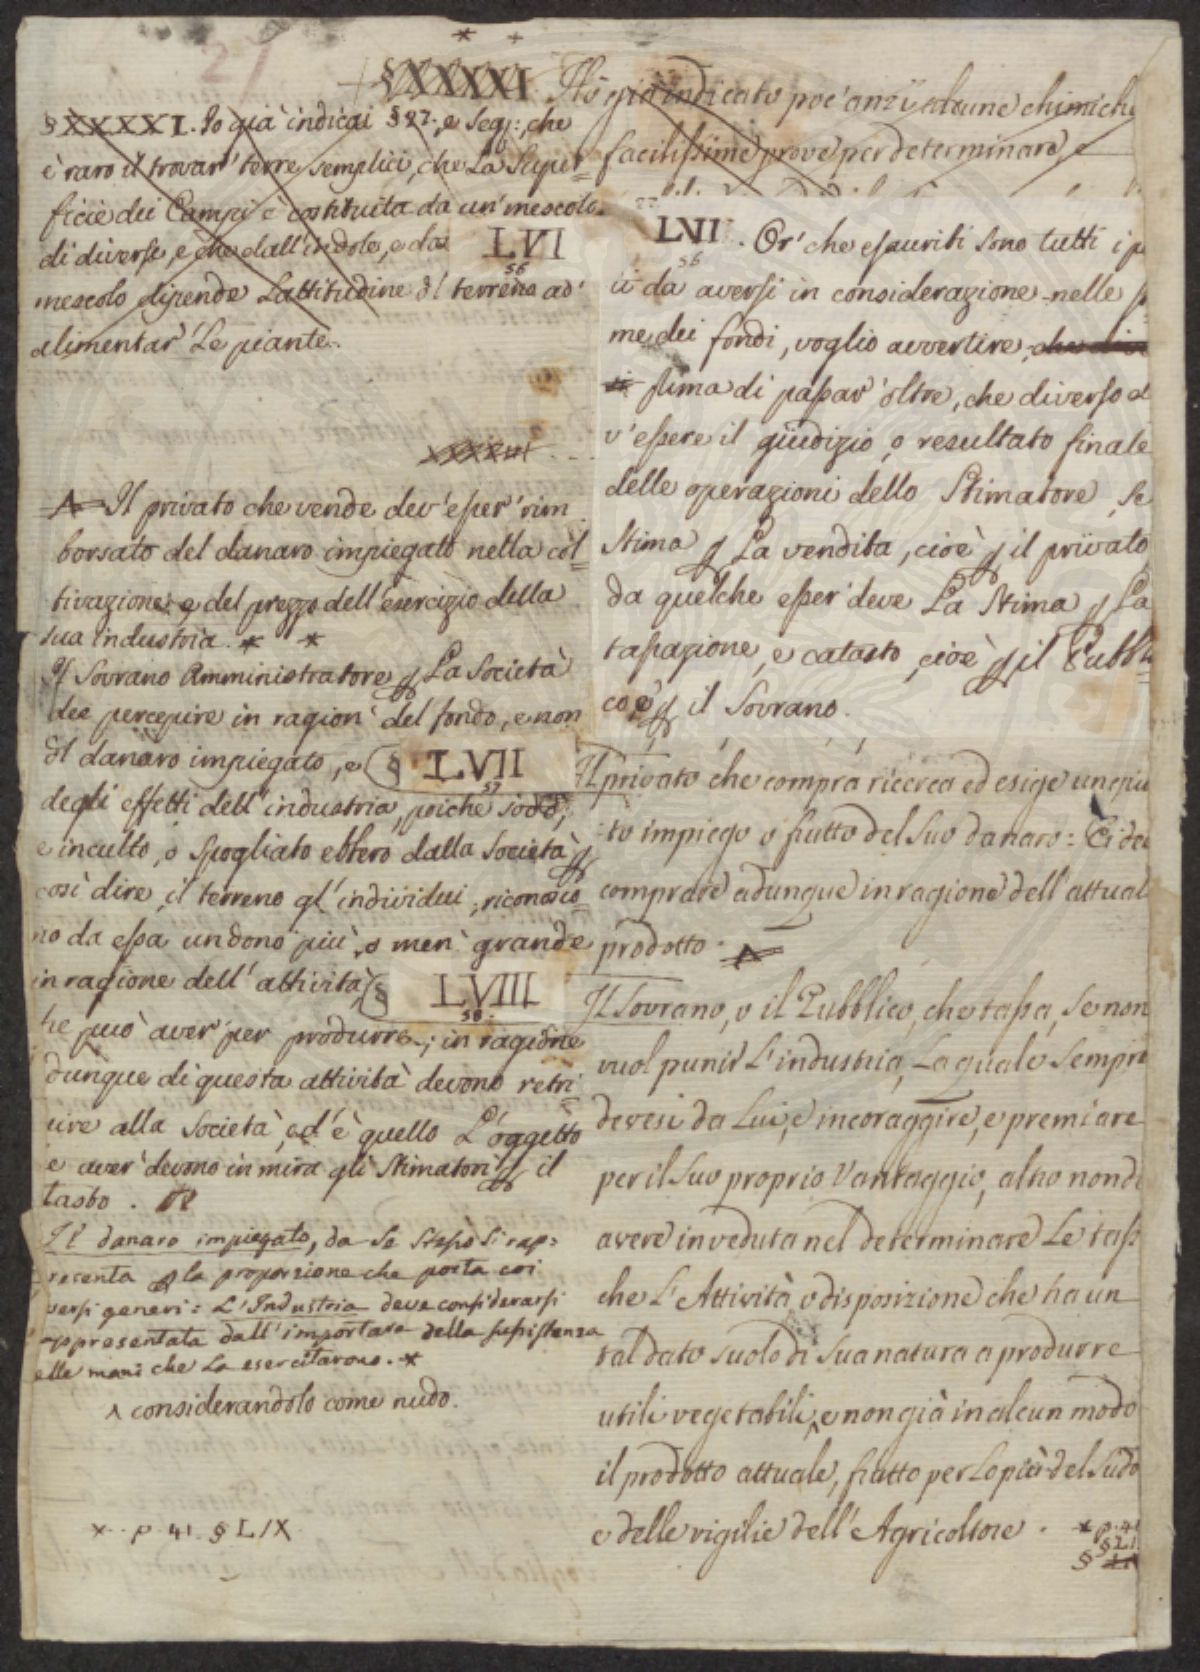 27
§XXXXXI
§XXXXXI. Io già indicai § 27. e Seg: che
è raro il trovar' terre semplici, che La Super=
ficie dei Campi è costituita da un' mescolo
di diverse, e che dall'indole, e da
LVI
56
mescolo dipende L'attitudine dl' terreno ad'
alimentar' Le piante.
^ Il privato che vende dev'esser' rim
borsato del danaro impiegato nella col=
tivazione e del prezzo dell'esercizio della
sua industria. * *
Il Sovrano Amministratore p La Società
dee percepire in ragion' del fondo, e non
dl danaro impiegato, e § LVII
57
degli effetti dell'industria, poiche sodo,
e inculto, o Spogliato ebbero dalla Società p
così dire, il terreno gl'individui, riconosco=
no da essa un dono più, o men' grande
in ragione dell'attività § LVIII
58.
he può aver' per produrre; in ragione
dunque di questa attività devono retri
uire alla Società, ed'è quello L'oggetto
e aver' devono in mira gli Stimatori p il
tasto.
Il danaro impiegato, da Se Stesso Si rap=
resenta p la proporzione che porta coi
versi generi = L'Industria deve considerarsi
appresentata dall'importare della sussistenza
elle mani che La esercitarono. *
^ considerandolo come nudo.
* p. 41. § LIX.
Hò già indicato poc'anzi alcune chimiche
facilissime prove per determinare, e
LVII. Or' che esauriti sono tutti i p
56
ii da aversi in considerazione nelle s
me dei fondi, voglio avvertire,
prima di passar' oltre, che diverso d
v'essere il giudizio, o resultato finale
delle operazioni dello Stimatore, se
stima p La vendita, cioè p il privato
da quelche esser deve La Stima p La
tassazione, e catasto, cioè p il Pubbli=
co, e p il Sovrano.
Il privato che compra ricerca ed esige un giu
:to impiego o frutto del Suo danaro: Ei dee
comprare adunque in ragione dell'attual
prodotto. ^
Il Sovrano, o il Pubblico, che tassa, Se non
vuol punir L'industria, La quale Sempre
devesi da Lui, e incoraggire, e premiare
per il Suo proprio Vantaggio, altro non d
avere in veduta nel determinare Le tass
che L'Attività o disposizione che ha un
tal dato suolo di Sua natura a produrre
utili vegetabili, ^ e non già in alcun modo
il prodotto attuale, frutto per Lo più del Sudo
e delle vigilie dell'Agricoltore. * p. 41
§ LI